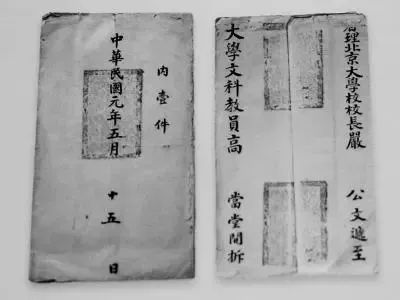 署理北京大學校校長嚴 公文遞至
大學文科教員高 當堂開拆
內壹件
中華民國元年五月 十五 日